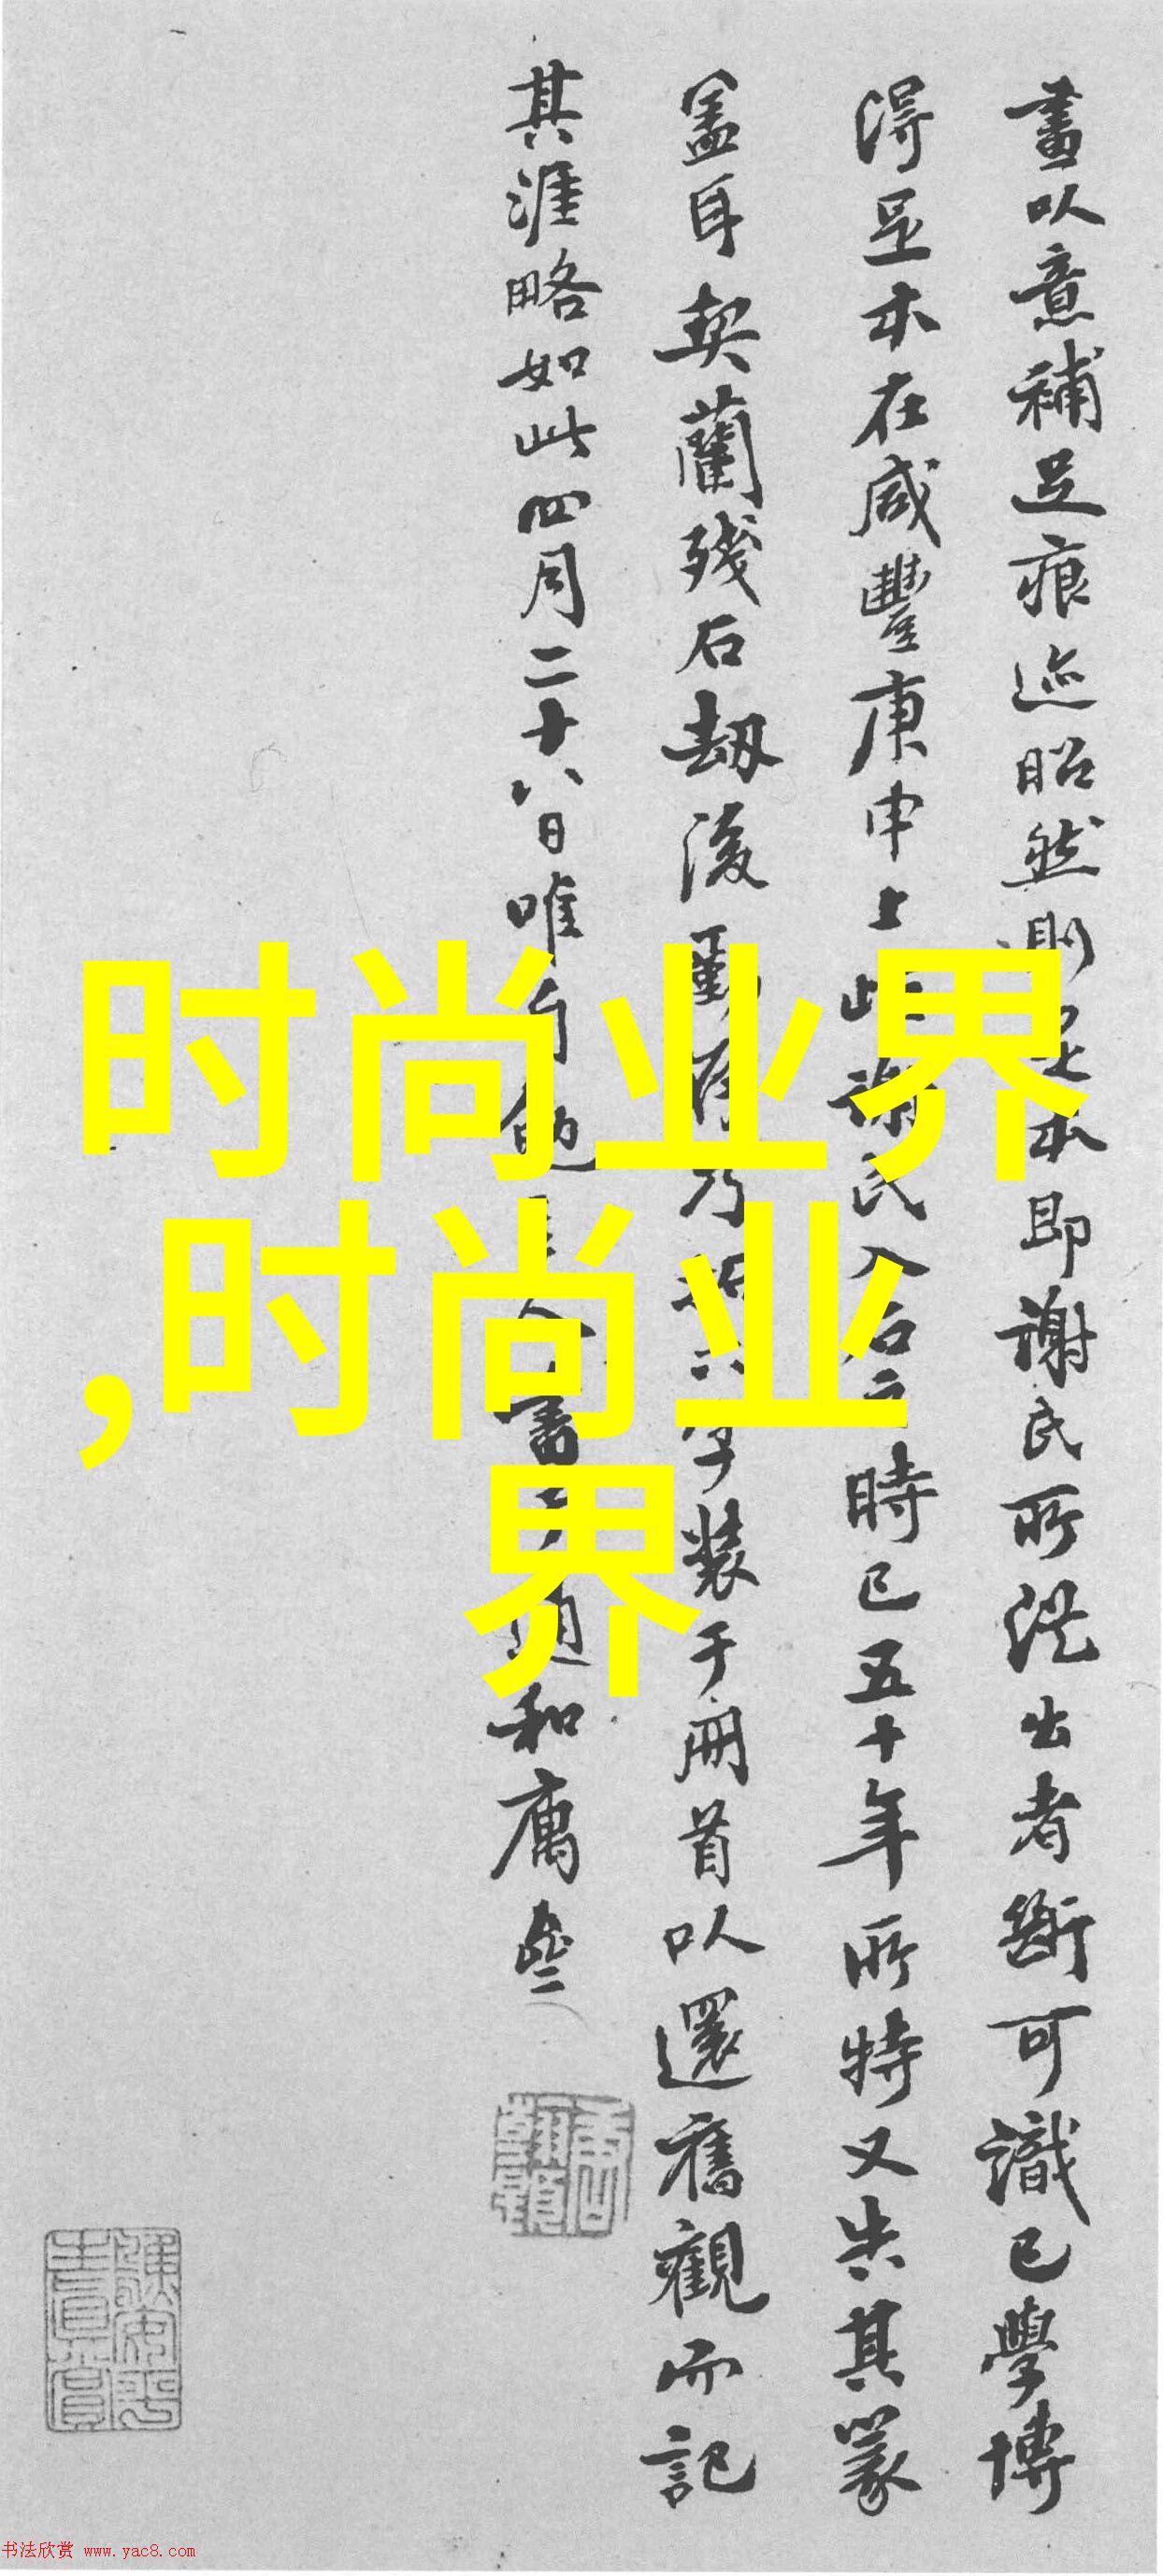 畫以意補足痕迹昭然則足本即謝氏所從出者斷可識已學博
得足本在咸豐庚申上此謝氏入石之時已五十年所特又失其篆
盖耳契蘭残石劫後
字装于册首以還舊觀而記
其涯略如此四月二十八日唯
和庵
时尚业界
,时尚业
界
书法欣赏 www.yac8.com